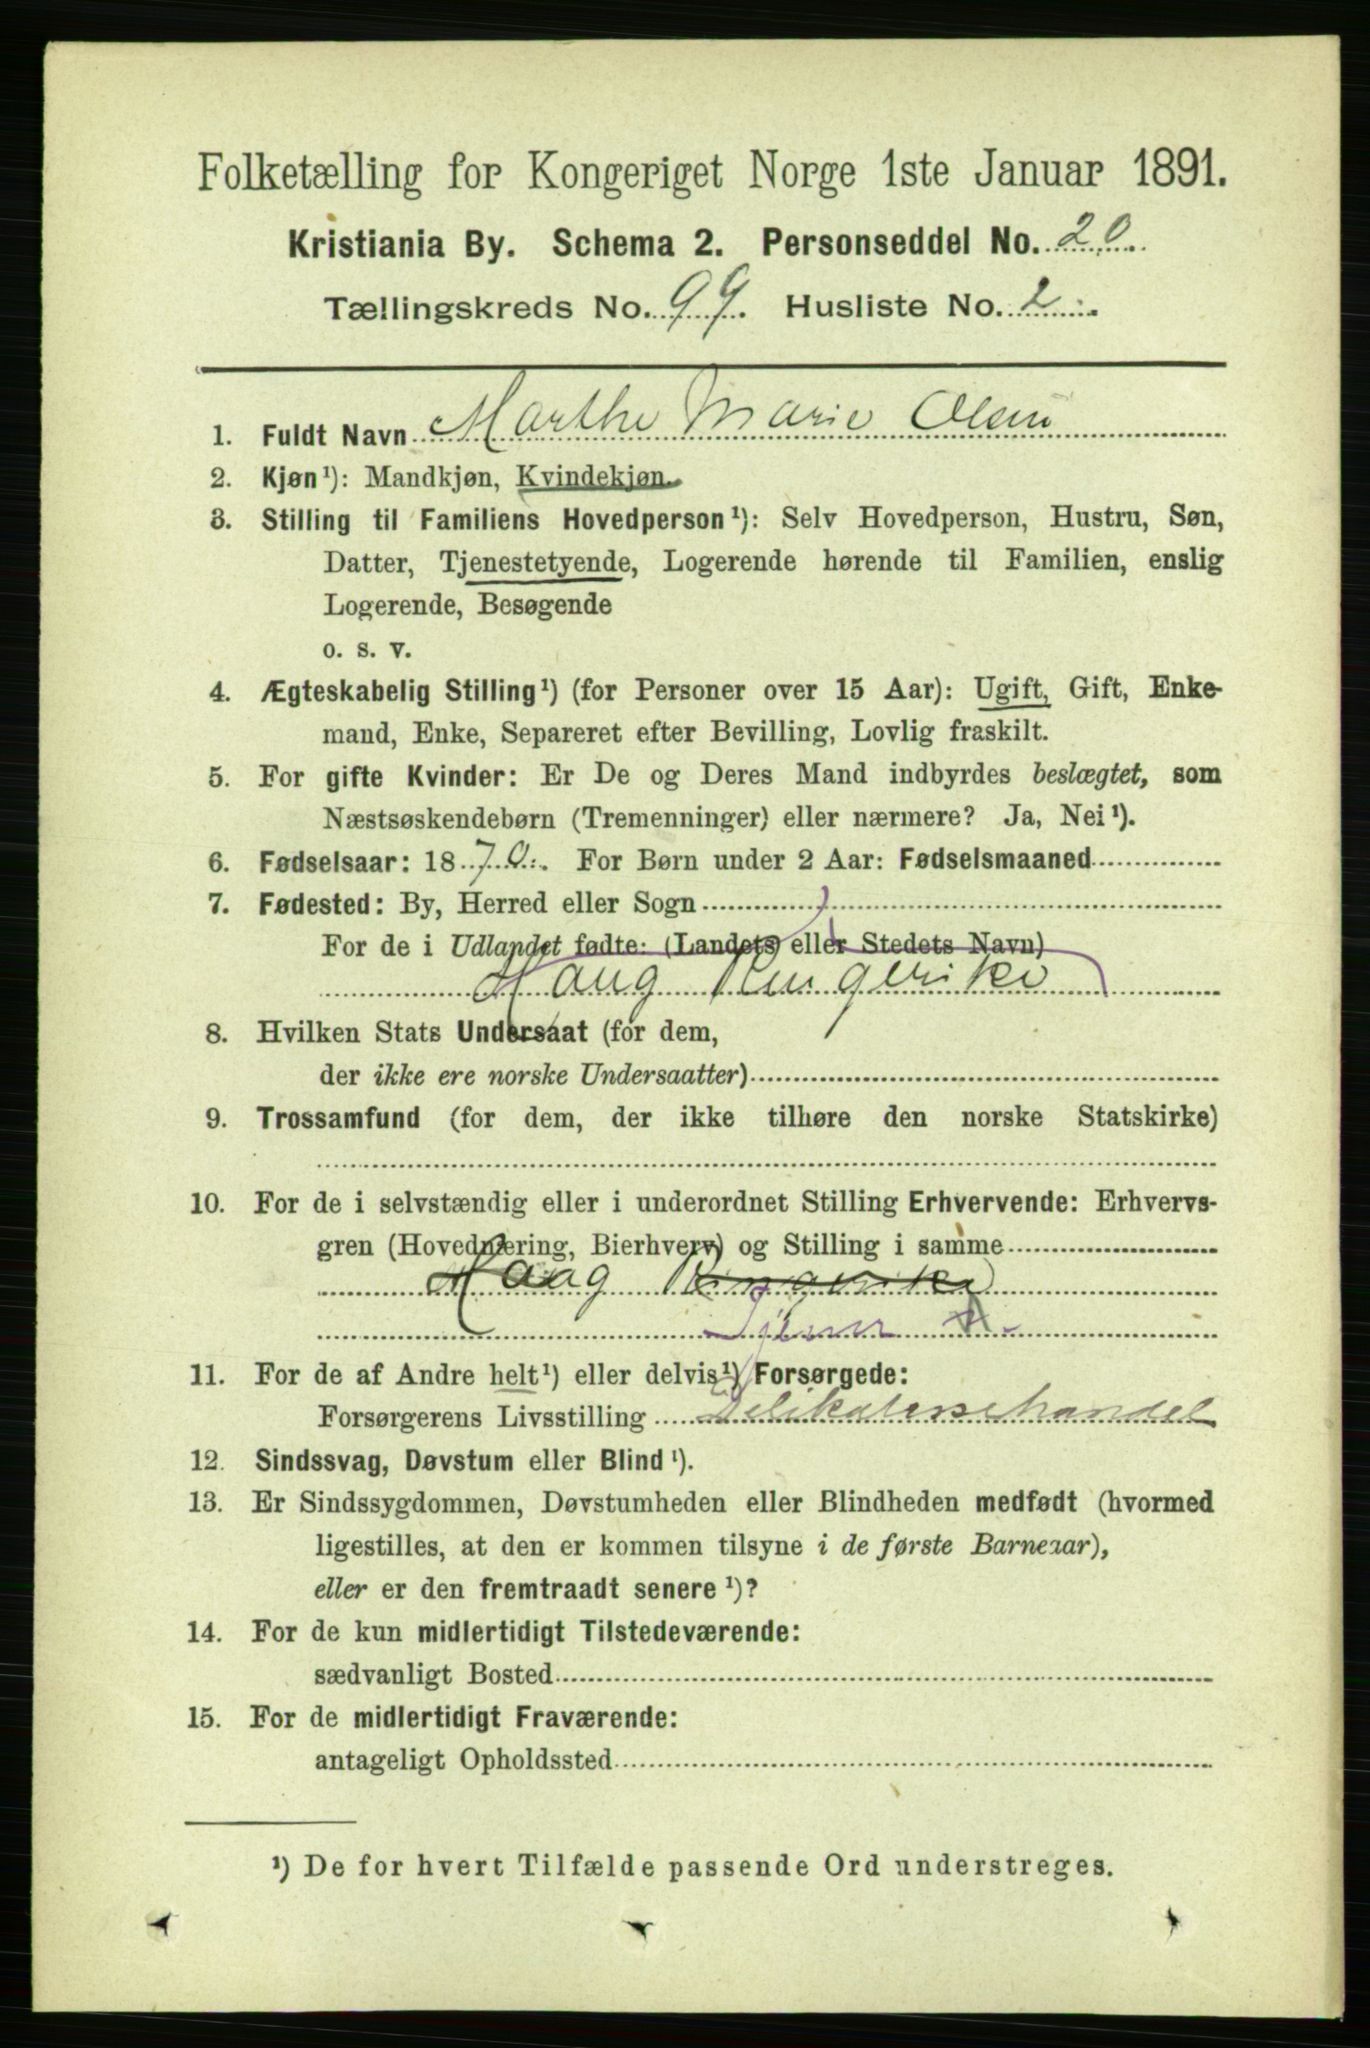 Folketælling for Kongeriget Norge 1ste Januar 1891.
Kristiania By. Schema 2. Personseddel No. 20
Tællingskreds No. 99. Husliste No. 2
1. Fuldt Navn Marthe Marie Olsen
2. Kjøn¹): Mandkjøn, Kvindekjøn.
3. Stilling til Familiens Hovedperson¹): Selv Hovedperson, Hustru, Søn,
Datter, Tjenestetyende, Logerende hørende til Familien, enslig
Logerende, Besøgende
o. s. v.
4. Ægteskabelig Stilling¹) (for Personer over 15 Aar): Ugift, Gift, Enke-
mand, Enke, Separeret efter Bevilling, Lovlig fraskilt.
5. For gifte Kvinder: Er De og Deres Mand indbyrdes beslægtet, som
Næstsøskendebørn (Tremenninger) eller nærmere? Ja, Nei¹).
6. Fødselsaar: 1870. For Børn under 2 Aar: Fødselsmaaned
7. Fødested: By, Herred eller Sogn
For de i Udlandet fødte: (Landets eller Stedets Navn)
Haug Ringerike
8. Hvilken Stats Undersaat (for dem,
der ikke ere norske Undersaatter)
9. Trossamfund (for dem, der ikke tilhøre den norske Statskirke)
10. For de i selvstændig eller i underordnet Stilling Erhvervende: Erhvervs-
gren (Hovednæring, Bierhverv) og Stilling i samme
Haag Ringerike
Tjener
11. For de af Andre helt¹) eller delvis¹) Forsørgede:
Forsørgerens Livsstilling Delikatessehandel
12. Sindssvag, Døvstum eller Blind¹).
13. Er Sindssygdommen, Døvstumheden eller Blindheden medfødt (hvormed
ligestilles, at den er kommen tilsyne i de første Barneaar),
eller er den fremtraadt senere¹)?
14. For de kun midlertidigt Tilstedeværende:
sædvanligt Bosted
15. For de midlertidigt Fraværende:
antageligt Opholdssted
¹) De for hvert Tilfælde passende Ord understreges.